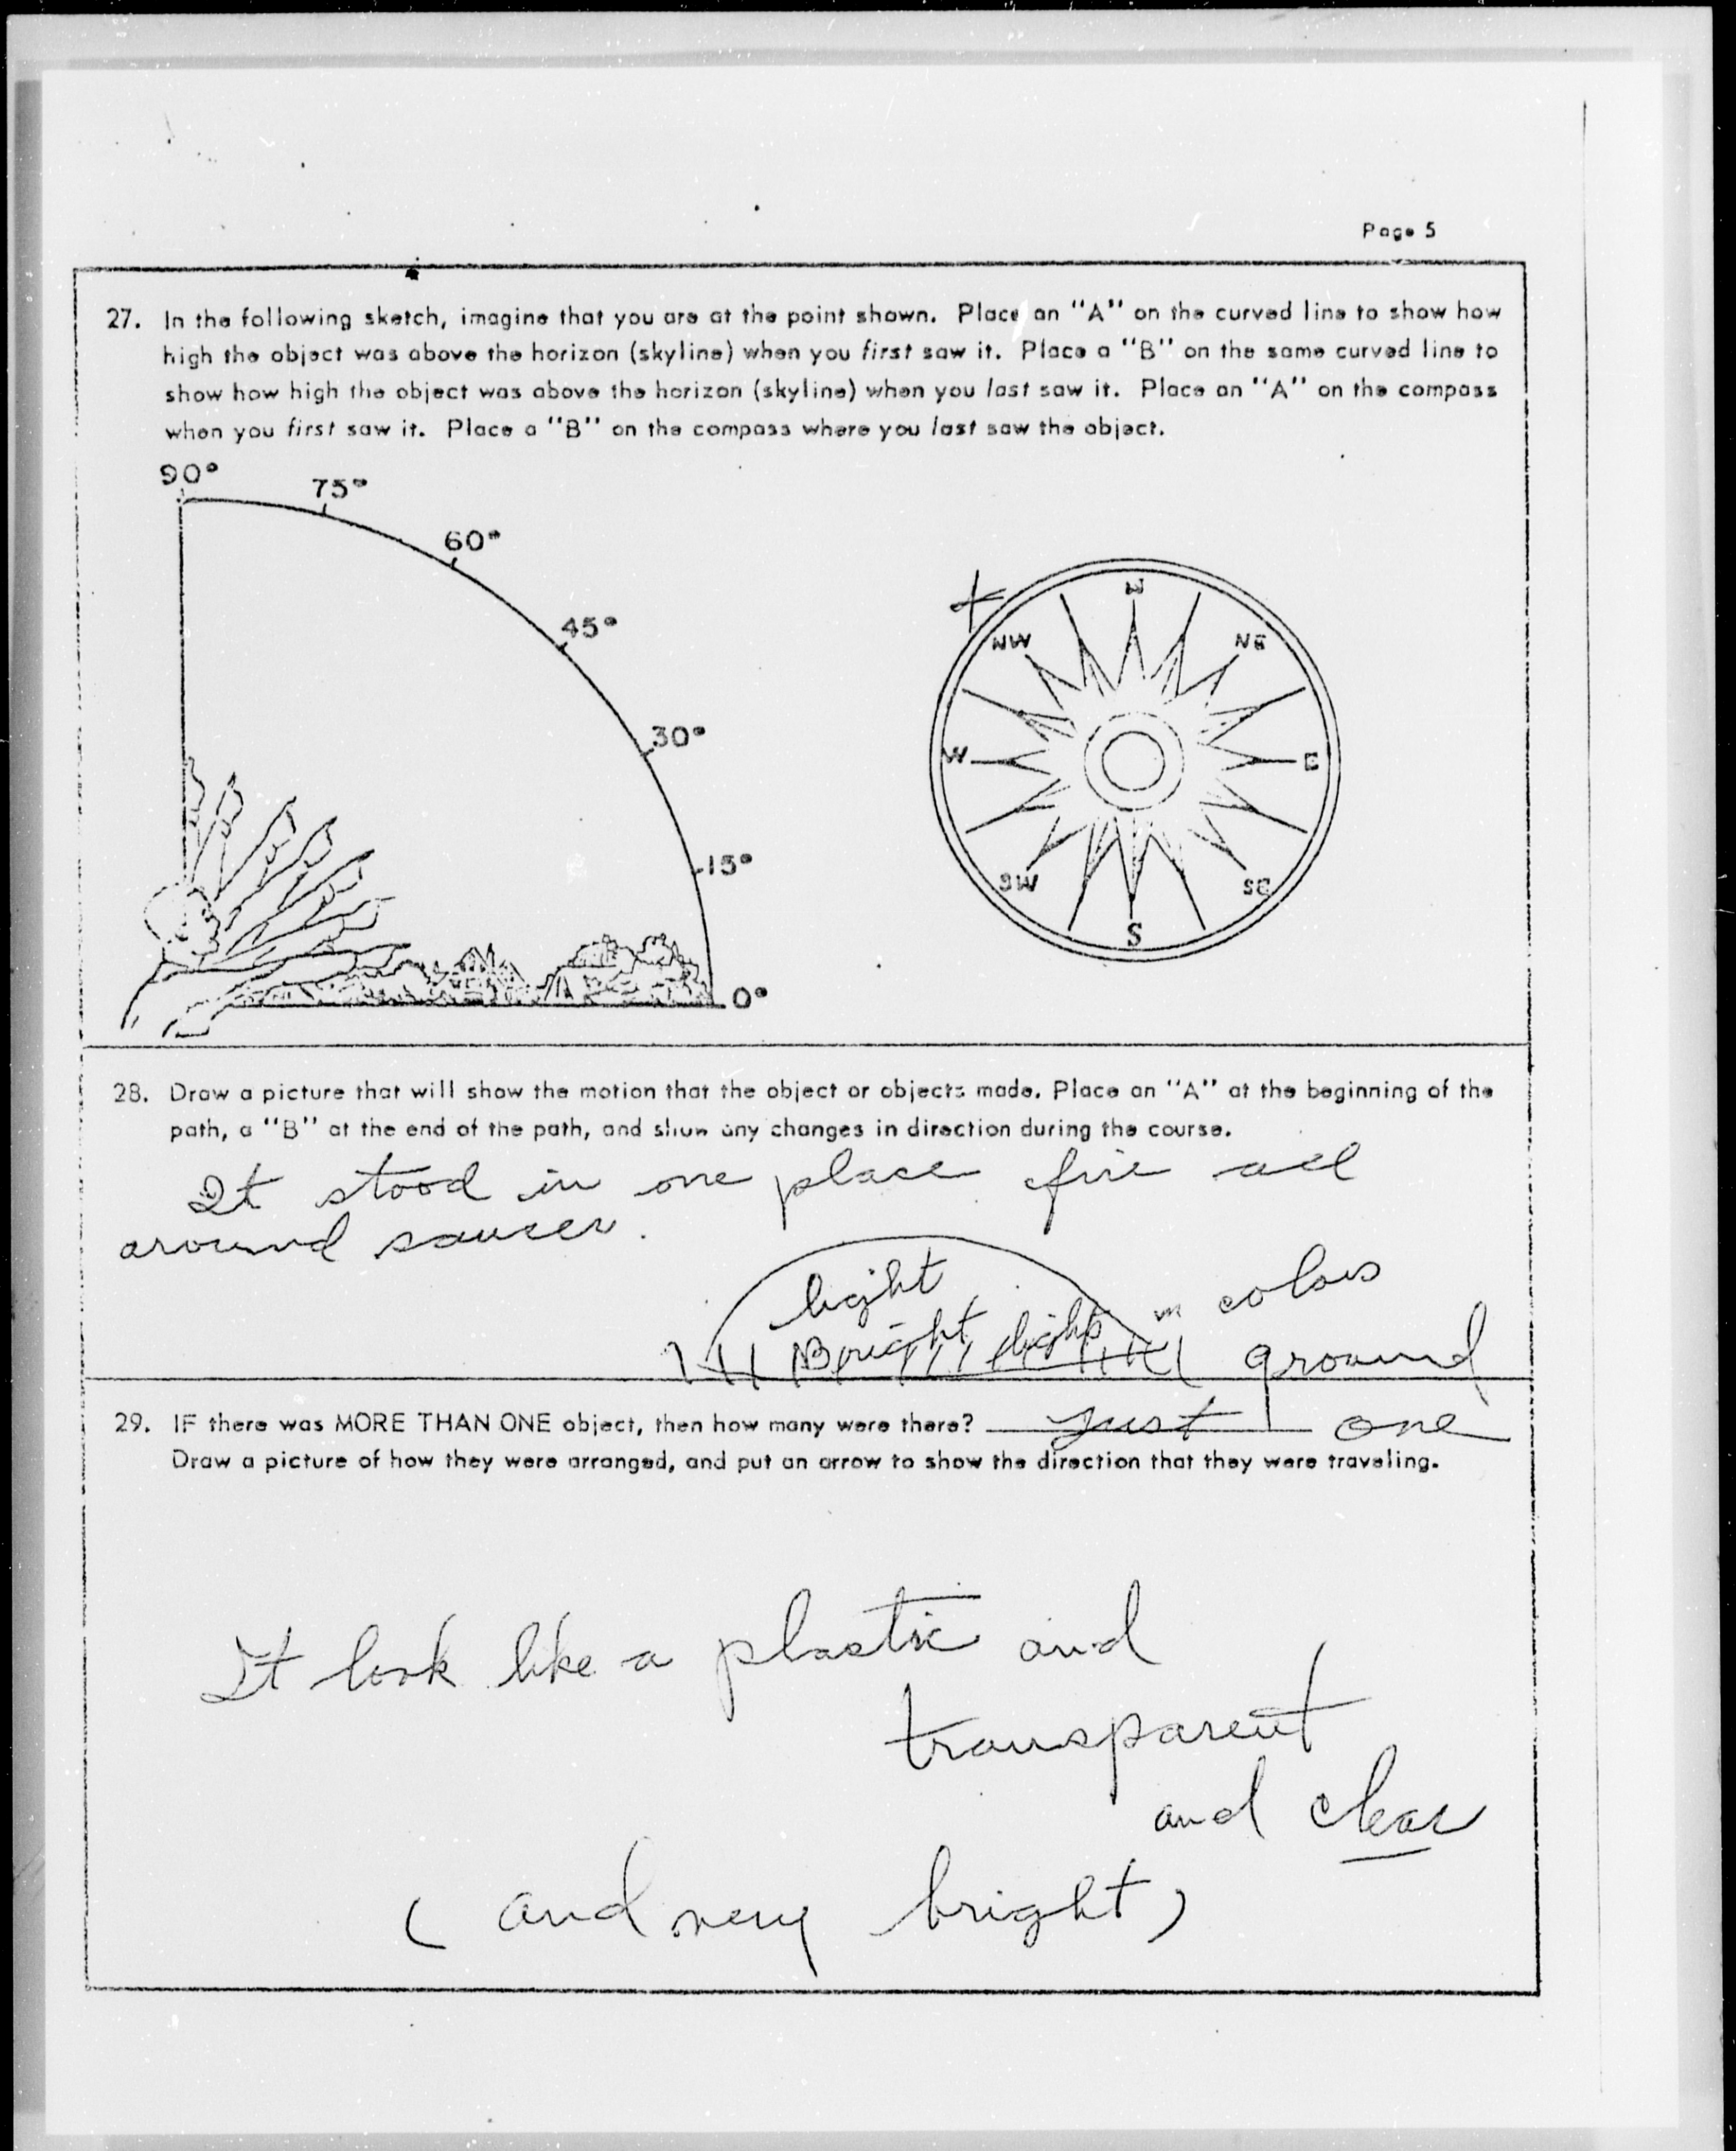 Page 5
27. In the following sketch, imagine that you are at the point shown. Place an "A" on the curved line to show how
high the object was above the horizon (skyline) when you first saw it. Place a "B" on the same curved line to
show how high the object was above the horizon (skyline) when you last saw it. Place an "A" on the compass
when you first saw it. Place a "B" on the compass where you last saw the object.
90°
75°
60°
45°
30°
15°
0°
N
NW
NE
W
E
SW
SE
S
28. Draw a picture that will show the motion that the object or objects made. Place an "A" at the beginning of the
path, a "B" at the end of the path, and show any changes in direction during the course.
It stood in one place fire all
around saucer.
light
Bright lights in colors
ground
29. IF there was MORE THAN ONE object, then how many were there? just one
Draw a picture of how they were arranged, and put an arrow to show the direction that they were traveling.
It look like a plastic and
transparent
and clear
( and very bright )